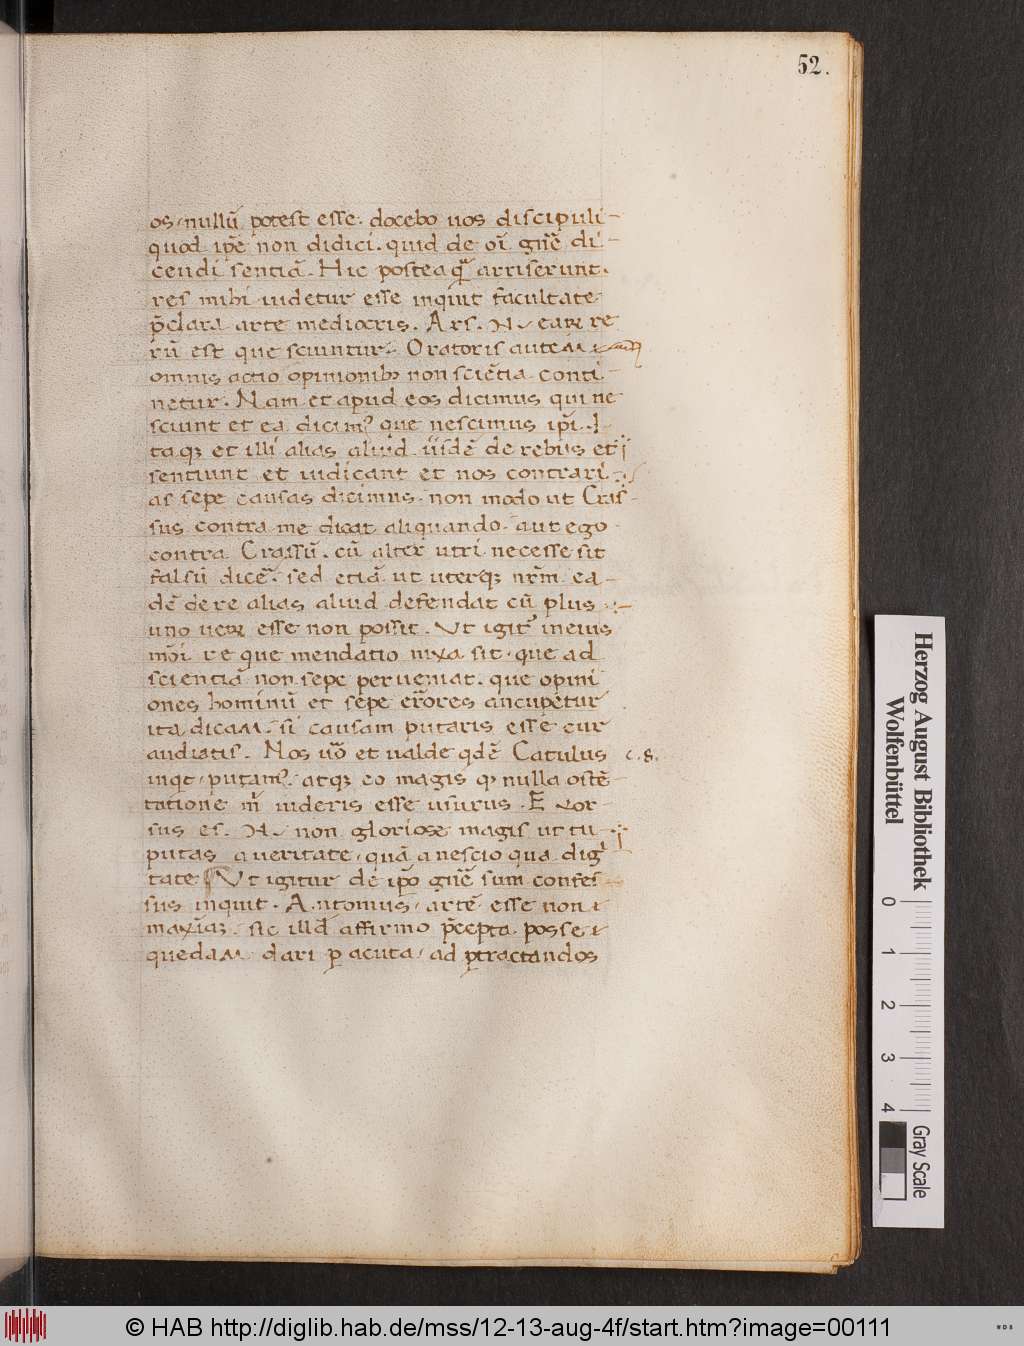 52.
os, nullũ potest esse. docebo uos discipuli-
quod ip̃e non didici. quid de oĩ gñe di-
cendi sentiã. Hic postea q̃ arriserunt.
res mihi uidetur esse inquit facultate
p̃clara arte mediocris. Ars. N. earꝝ re
rũ est que sciuntur. Oratoris autem
omnis actio opinionibꝫ non sciẽtia conti
netur. Nam et apud eos dicimus qui ne
sciunt et ea dicimꝰ que nescimus ip̃i. I-
taqꝫ et illi alias aliud iisdẽ de rebus et
sentiunt et iudicant et nos contrari
as sepe causas dicimus. non modo ut Cras-
sus contra me dicat aliquando. aut ego
contra Crassũ. cũ alter utri necesse sit
falsũ dicẽ. sed etiã ut uterqꝫ nr̃m ea-
dẽ de re alias aliud defendat cũ plus
uno uerꝝ esse non possit. Ut igit᷑ in eius
mõi re que mendatio nixa sit. que ad
scientiã non sepe perueniat. que opini
ones hominũ et sepe errores aucupetur
ita dicam. si causam putaris esse cur
audiatis. Nos uõ et ualde qdẽ Catulus
c. 8.
inqt, putamꝰ. atqꝫ eo magis qꝫ nulla ostẽ-
tatione m̃ uideris esse usurus. E Vor-
sus es. N. non gloriose magis ut tu
putas a ueritate, quã a nescio qua dig
tate. Ut igitur de ip̃o gñe sum confes
sus inquit. Antonius, artẽ esse non
maxĩaꝫ. sic illd̃ affirmo p̃cepta posse
quedam dari ꝑ acuta, ad ꝑtractandos
Herzog August Bibliothek
Wolfenbüttel
0 1 2 3 4
Gray Scale
© HAB http://diglib.hab.de/mss/12-13-aug-4f/start.htm?image=00111